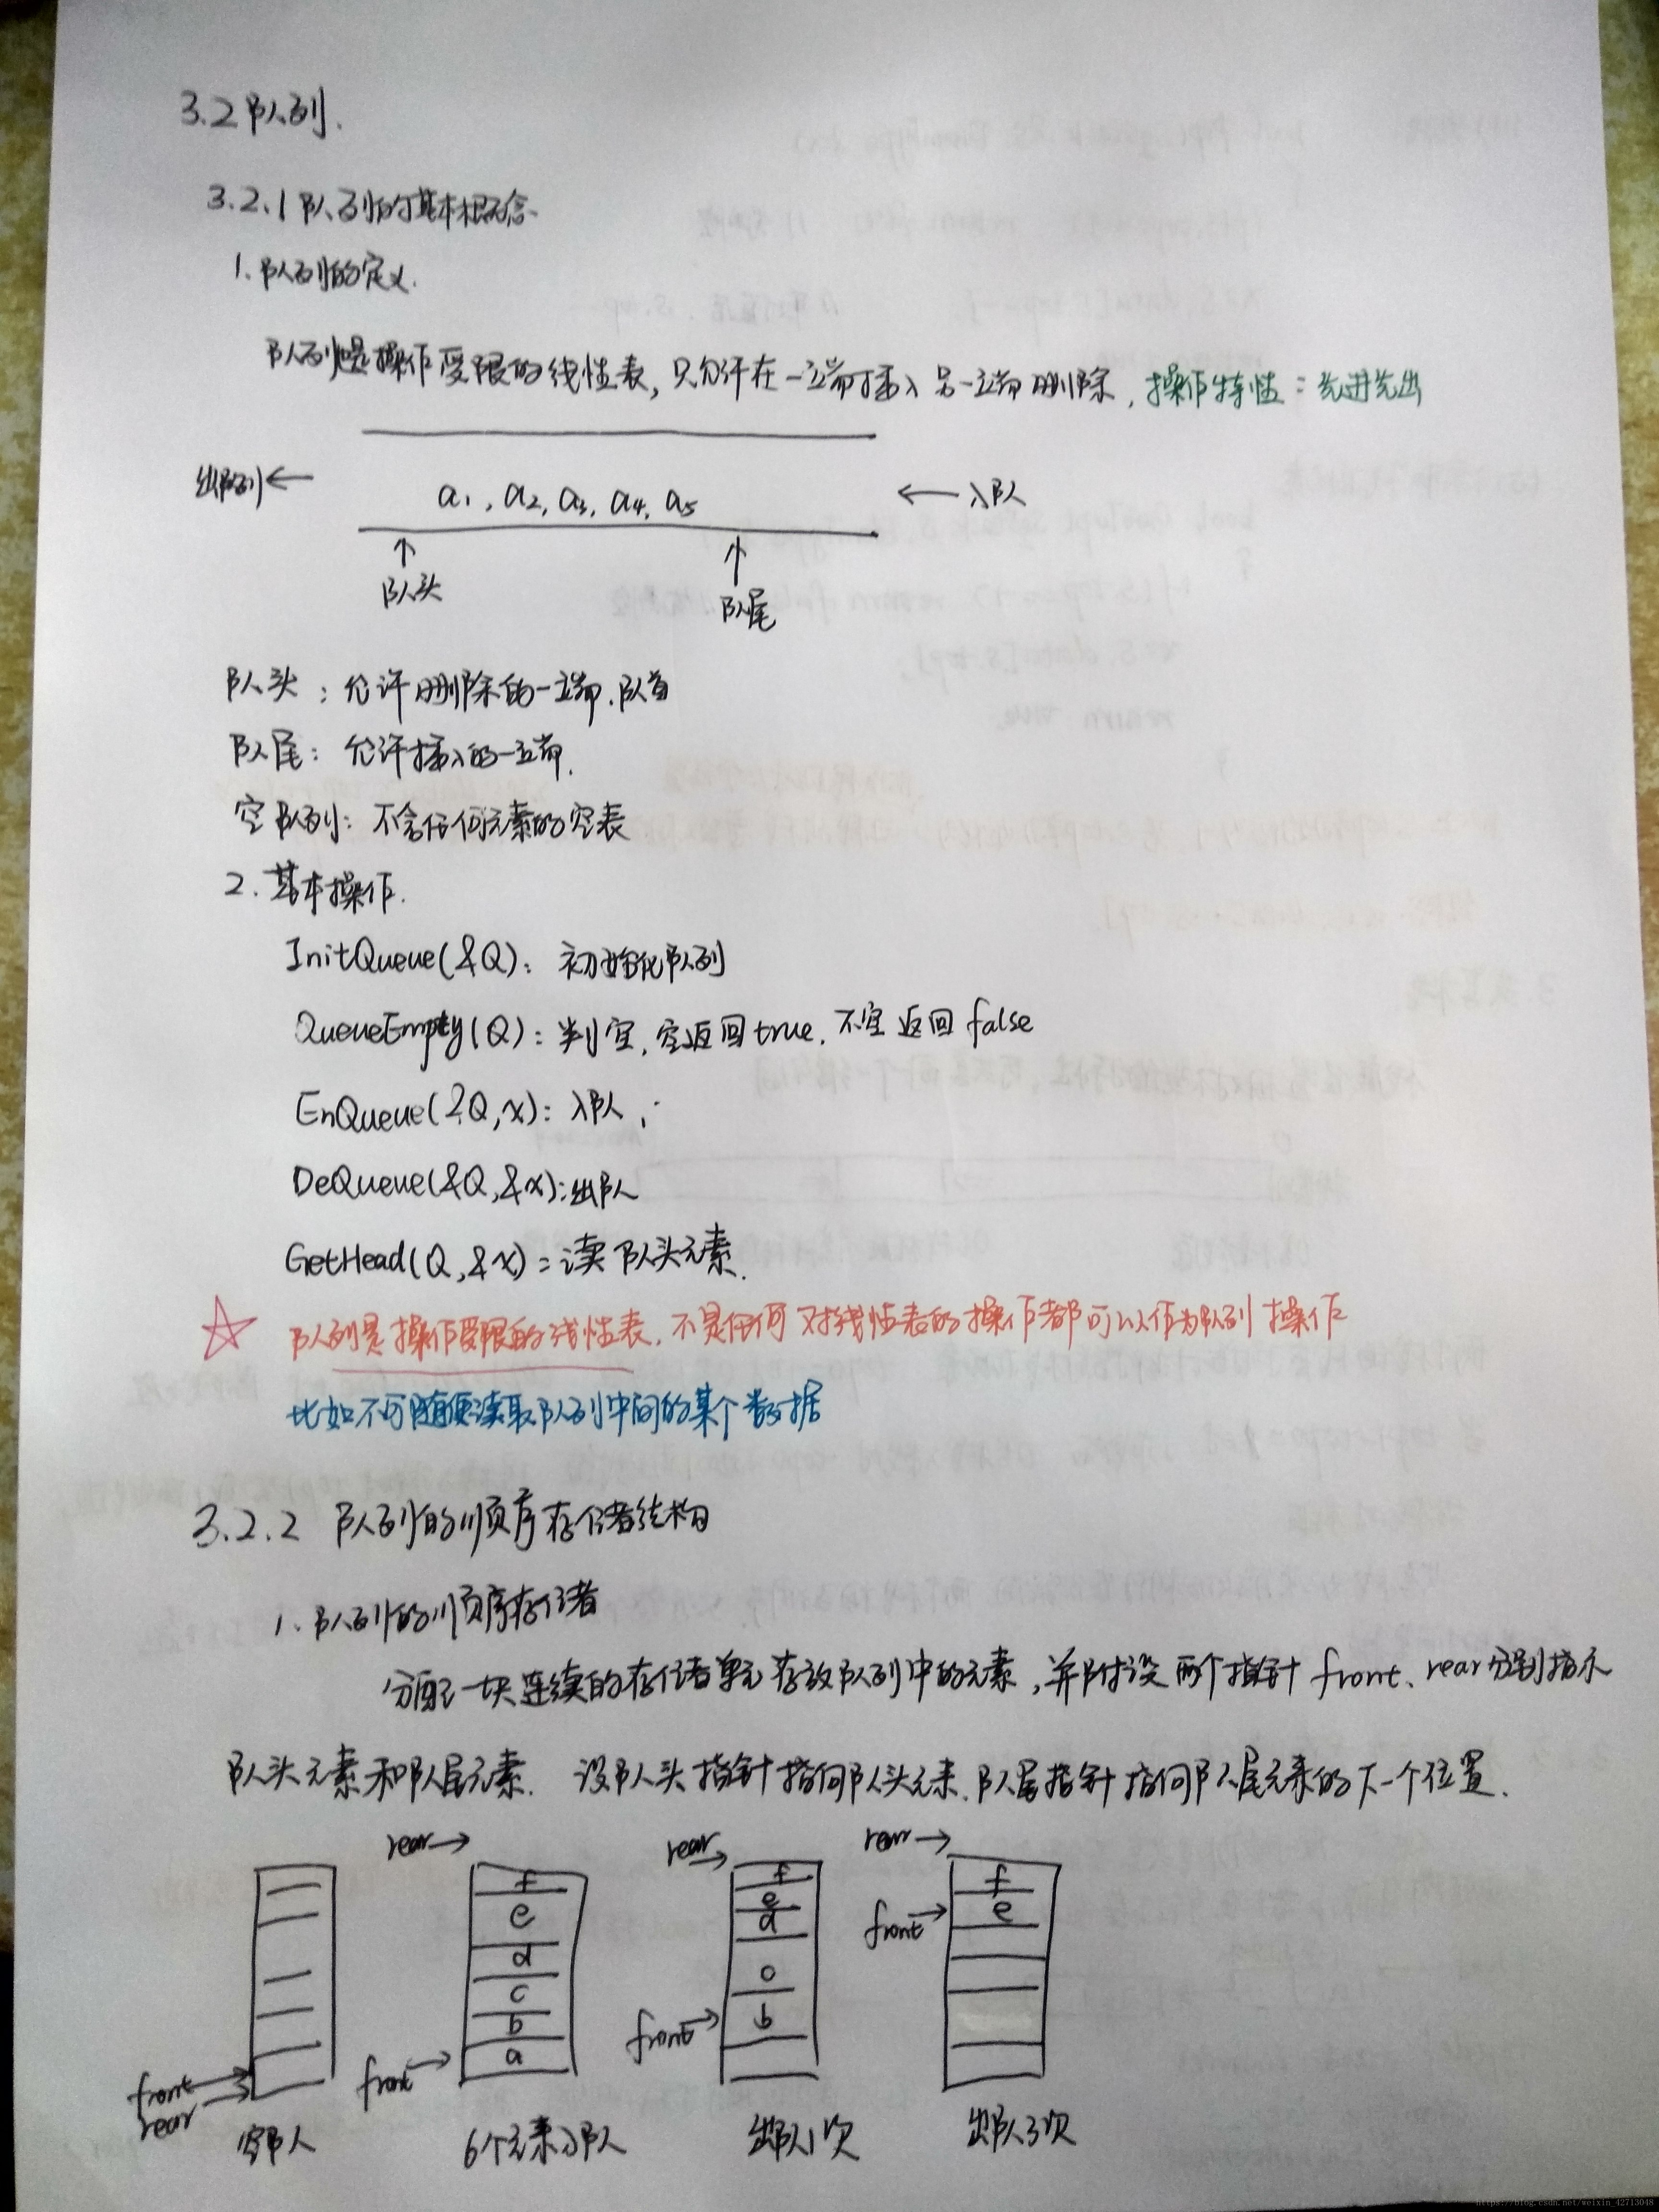 3.2 队列.
3.2.1 队列的基本概念
1. 队列的定义.
队列是操作受限的线性表,只允许在一端插入另一端删除,操作特性:先进先出
出队列← a1, a2, a3, a4, a5 ←入队
↑ ↑
队头 队尾
队头:允许删除的一端.队首
队尾:允许插入的一端.
空队列:不含任何元素的空表
2. 基本操作.
InitQueue(&Q): 初始化队列
QueueEmpty(Q): 判空,空返回true,不空返回false
EnQueue(&Q,x): 入队,
DeQueue(&Q,&x):出队
GetHead(Q,&x):读队头元素.
☆ 队列是操作受限的线性表,不是任何对线性表的操作都可以作为队列操作
比如不可随便读取队列中间的某个数据
3.2.2 队列的顺序存储结构
1、队列的顺序存储
分配一块连续的存储单元存放队列中的元素,并附设两个指针front、rear分别指示
队头元素和队尾元素. 设队头指针指向队头元素.队尾指针指向队尾元素的下一个位置.
rear→ rear→ rear→
f f f
e e front→ e
d d
c c
b front→ b
front→ front→ a
rear→
空队 6个元素入队 出队1次 出队3次
https://blog.csdn.net/weixin_42713048